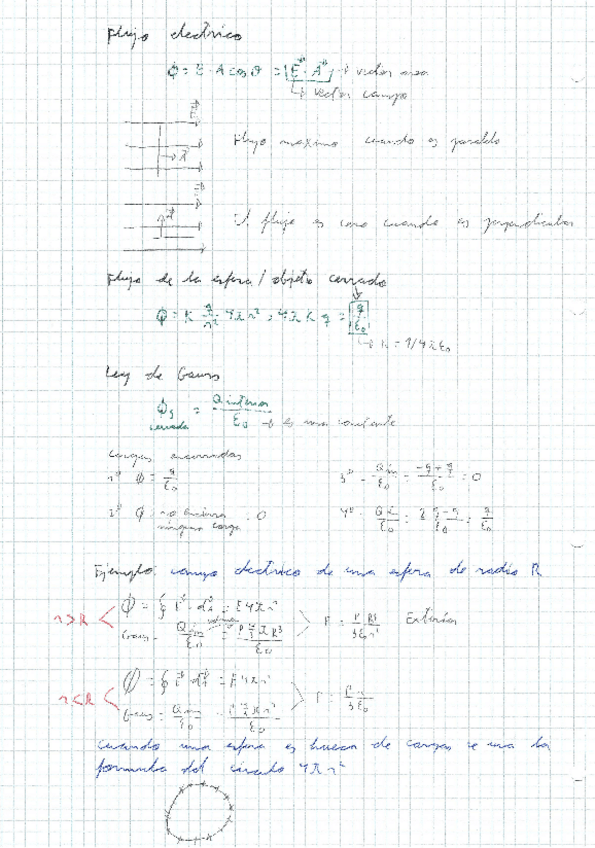 Flujo electrico
Φ = E · A cos θ = |E · A| → vector area
↳ vector campo
E
→ A
Flujo maximo cuando es paralelo
E
A
El flujo es cero cuando es perpendicular
Flujo de la esfera / objeto cerrado
Φ = K q/r² · 4πr² = 4πKq = q/ε₀
↳ K = 1/4πε₀
Ley de Gauss
Φ cerrada = Q interior / ε₀ → es una constante
Cargas encerradas
1º Φ = q/ε₀
3º = Qin/ε₀ = -q+q/ε₀ = 0
2º Φ = no encierra ninguna carga = 0
4º = Qin/ε₀ = 2q-q/ε₀ = q/ε₀
Ejemplo: campo electrico de una esfera de radio R
r>R
Φ = ∮ E · ds = E 4πr²
Gauss = Qin/ε₀ = ρ 4/3 π R³/ε₀
E = ρ R³/3ε₀r²
Exterior
r<R
Φ = ∮ E · ds = E 4πr²
Gauss = Qin/ε₀ = ρ 4/3 π r³/ε₀
E = ρ r/3ε₀
Cuando una esfera es hueca de cargas se usa la
formula del circulo 4πr²